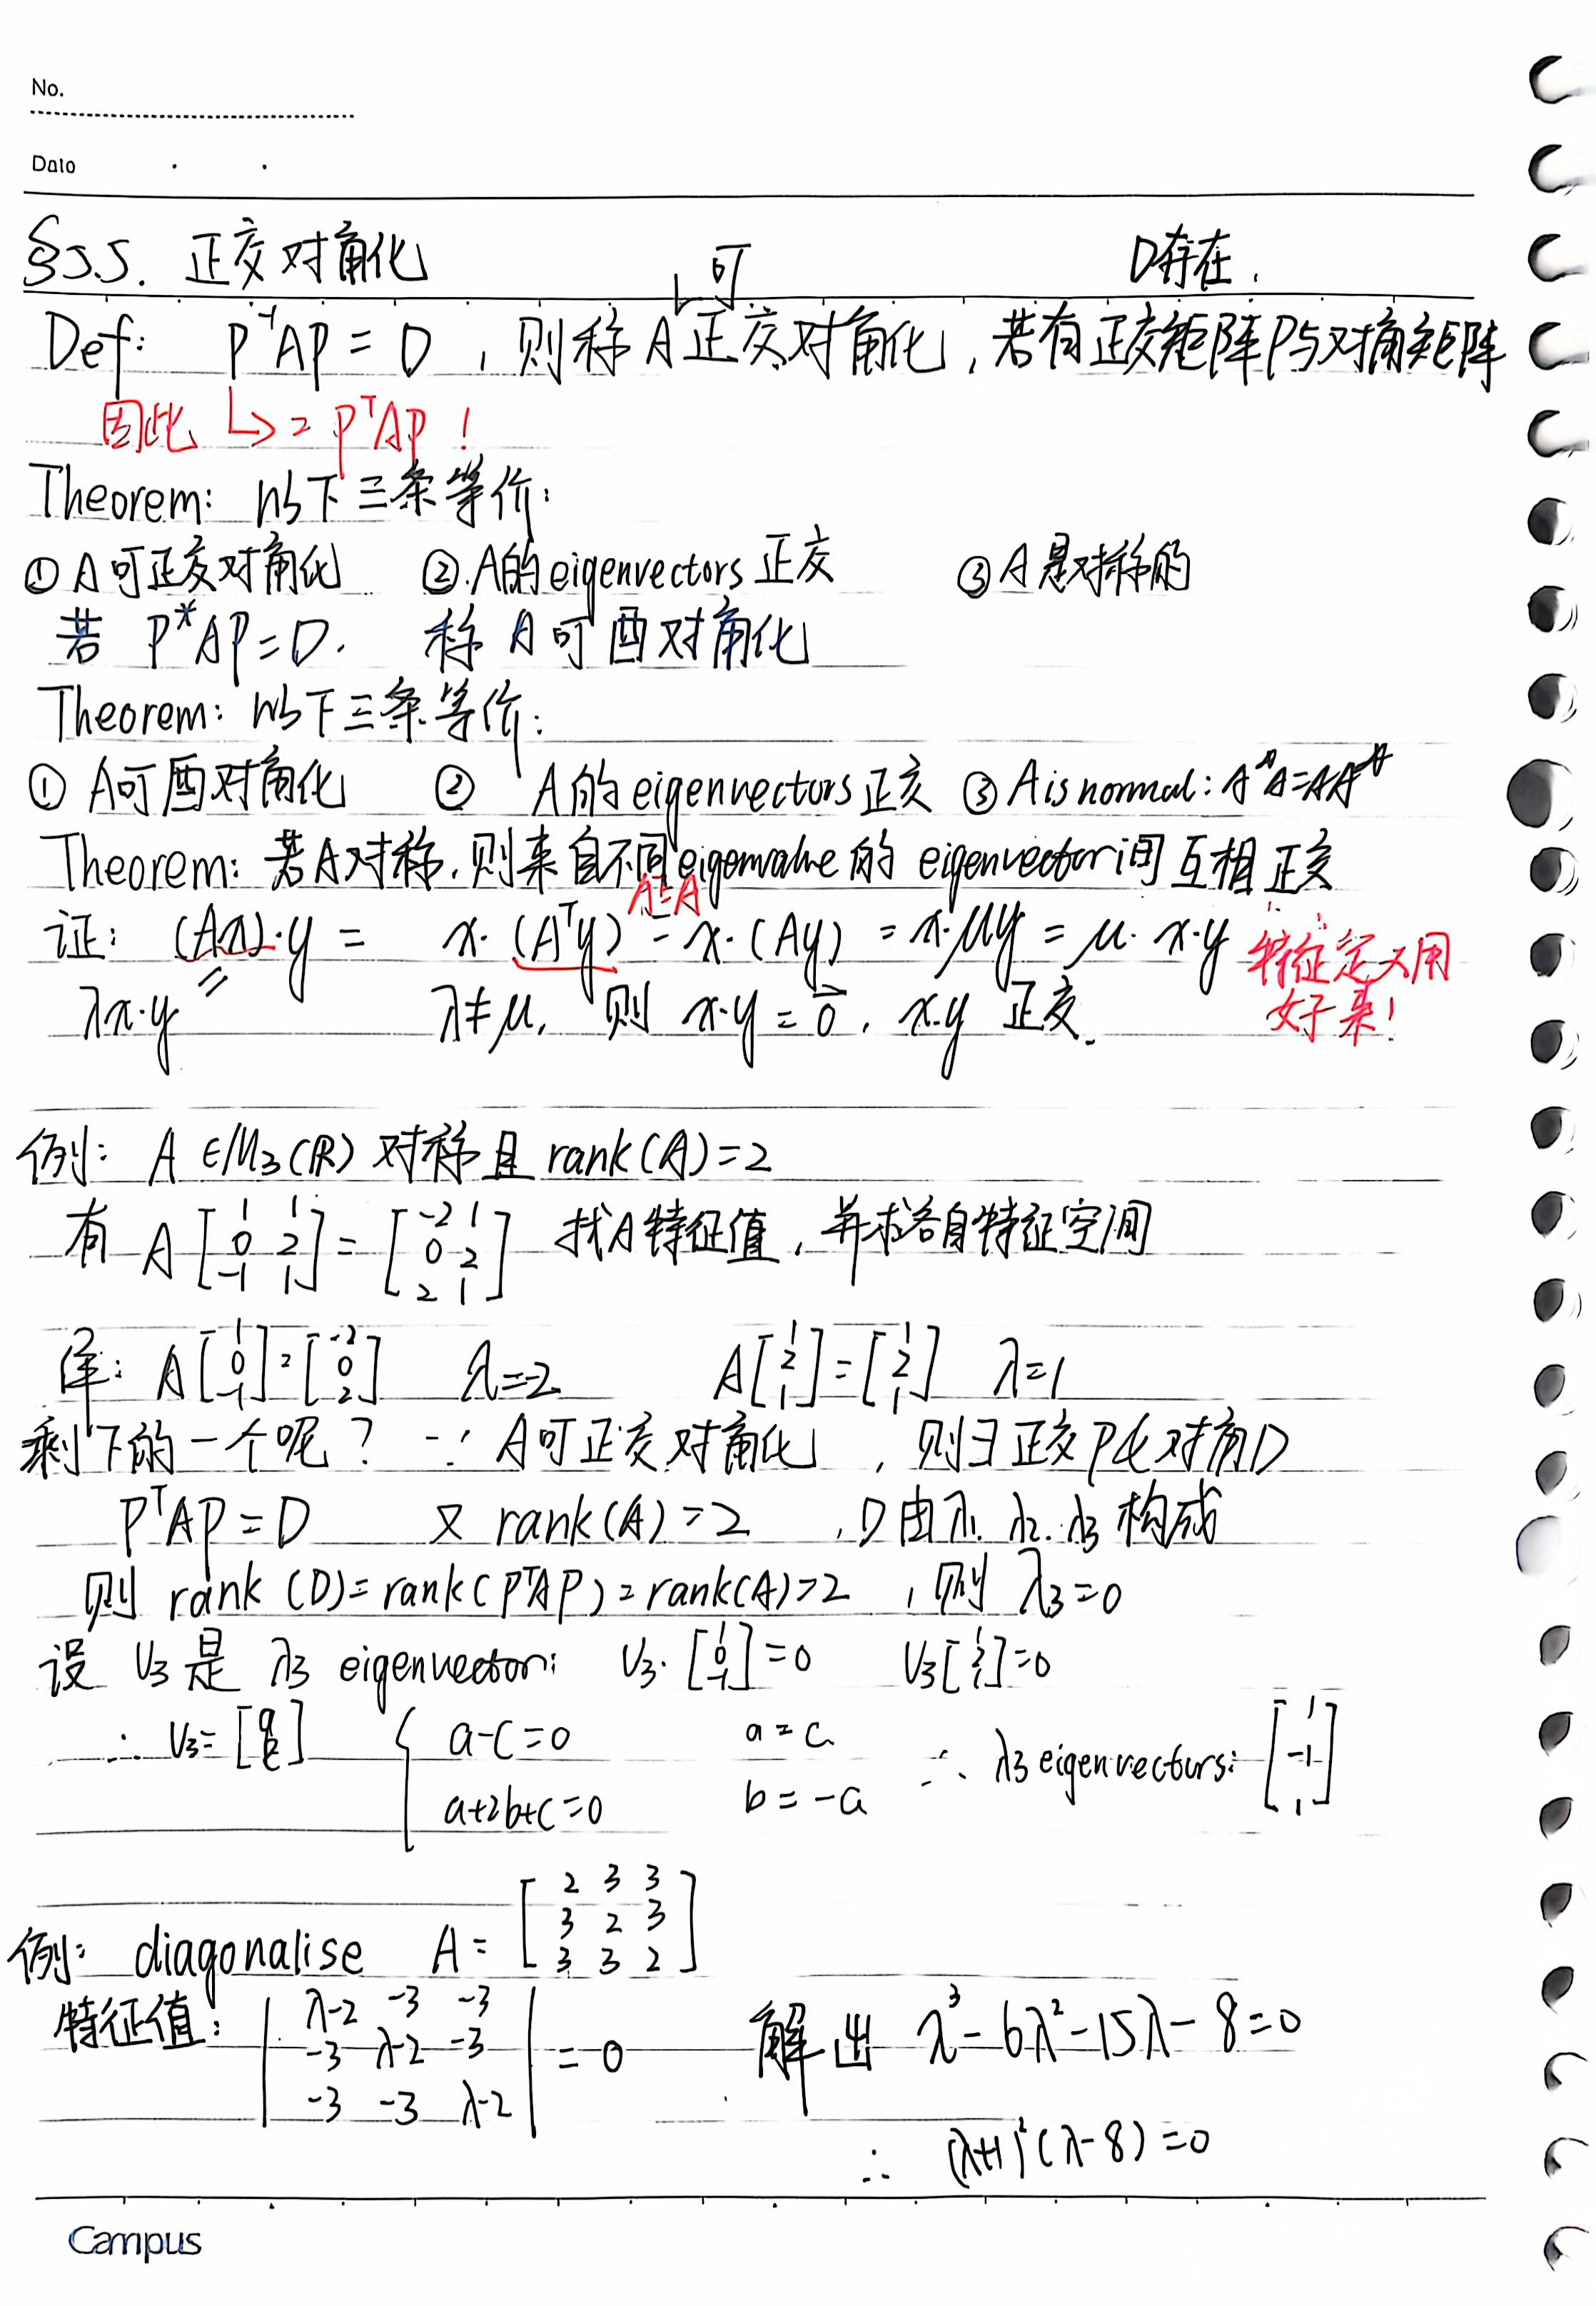 No.
Date
§5.5. 正交对角化 可 D存在.
Def: P⁻¹AP = D , 则称 A 正交对角化, 若有正交矩阵P与对角矩阵
因此 ↳ = PᵀAP !
Theorem: 以下三条等价:
① A可正交对角化 ② A的eigenvectors 正交 ③ A是对称的
若 P*AP=D. 称 A可酉对角化
Theorem: 以下三条等价:
① A可酉对角化 ② A的eigenvectors正交 ③ A is normal: A*A=AA*
Theorem: 若A对称, 则来自不同eigenvalue的 eigenvector间互相正交
Aᵀ=A
证: (Ax)·y = x·(Aᵀy) = x·(Ay) = x·μy = μ·x·y 特征定义用
λx·y = λ≠μ, 则 x·y = 0, x·y 正交. 好来!
例: A∈M₃(ℝ) 对称且 rank(A)=2
有 A [1 1; 0 2; -1 1] = [-2 1; 0 2; 2 1] 找A特征值, 并求各自特征空间
解: A[1; 0; -1] = [-2; 0; 2] λ=-2 A[1; 2; 1] = [1; 2; 1] λ=1
剩下的一个呢? ∵ A可正交对角化 , 则∃正交P & 对角D
PᵀAP = D 又 rank(A)=2 , D由λ₁. λ₂. λ₃ 构成
则 rank (D) = rank(PᵀAP) = rank(A)=2 , 则 λ₃=0
设 V₃ 是 λ₃ eigenvector: V₃·[1; 0; -1]=0 V₃[1; 2; 1]=0
∴ V₃=[a; b; c] { a-c=0 a=c ∴ λ₃ eigenvectors: [1; -1; 1]
a+2b+c=0 b=-a
例: diagonalise A= [2 3 3; 3 2 3; 3 3 2]
特征值: |λ-2 -3 -3; -3 λ-2 -3; -3 -3 λ-2| = 0 解出 λ³-6λ²-15λ-8=0
∴ (λ+1)²(λ-8)=0
Campus